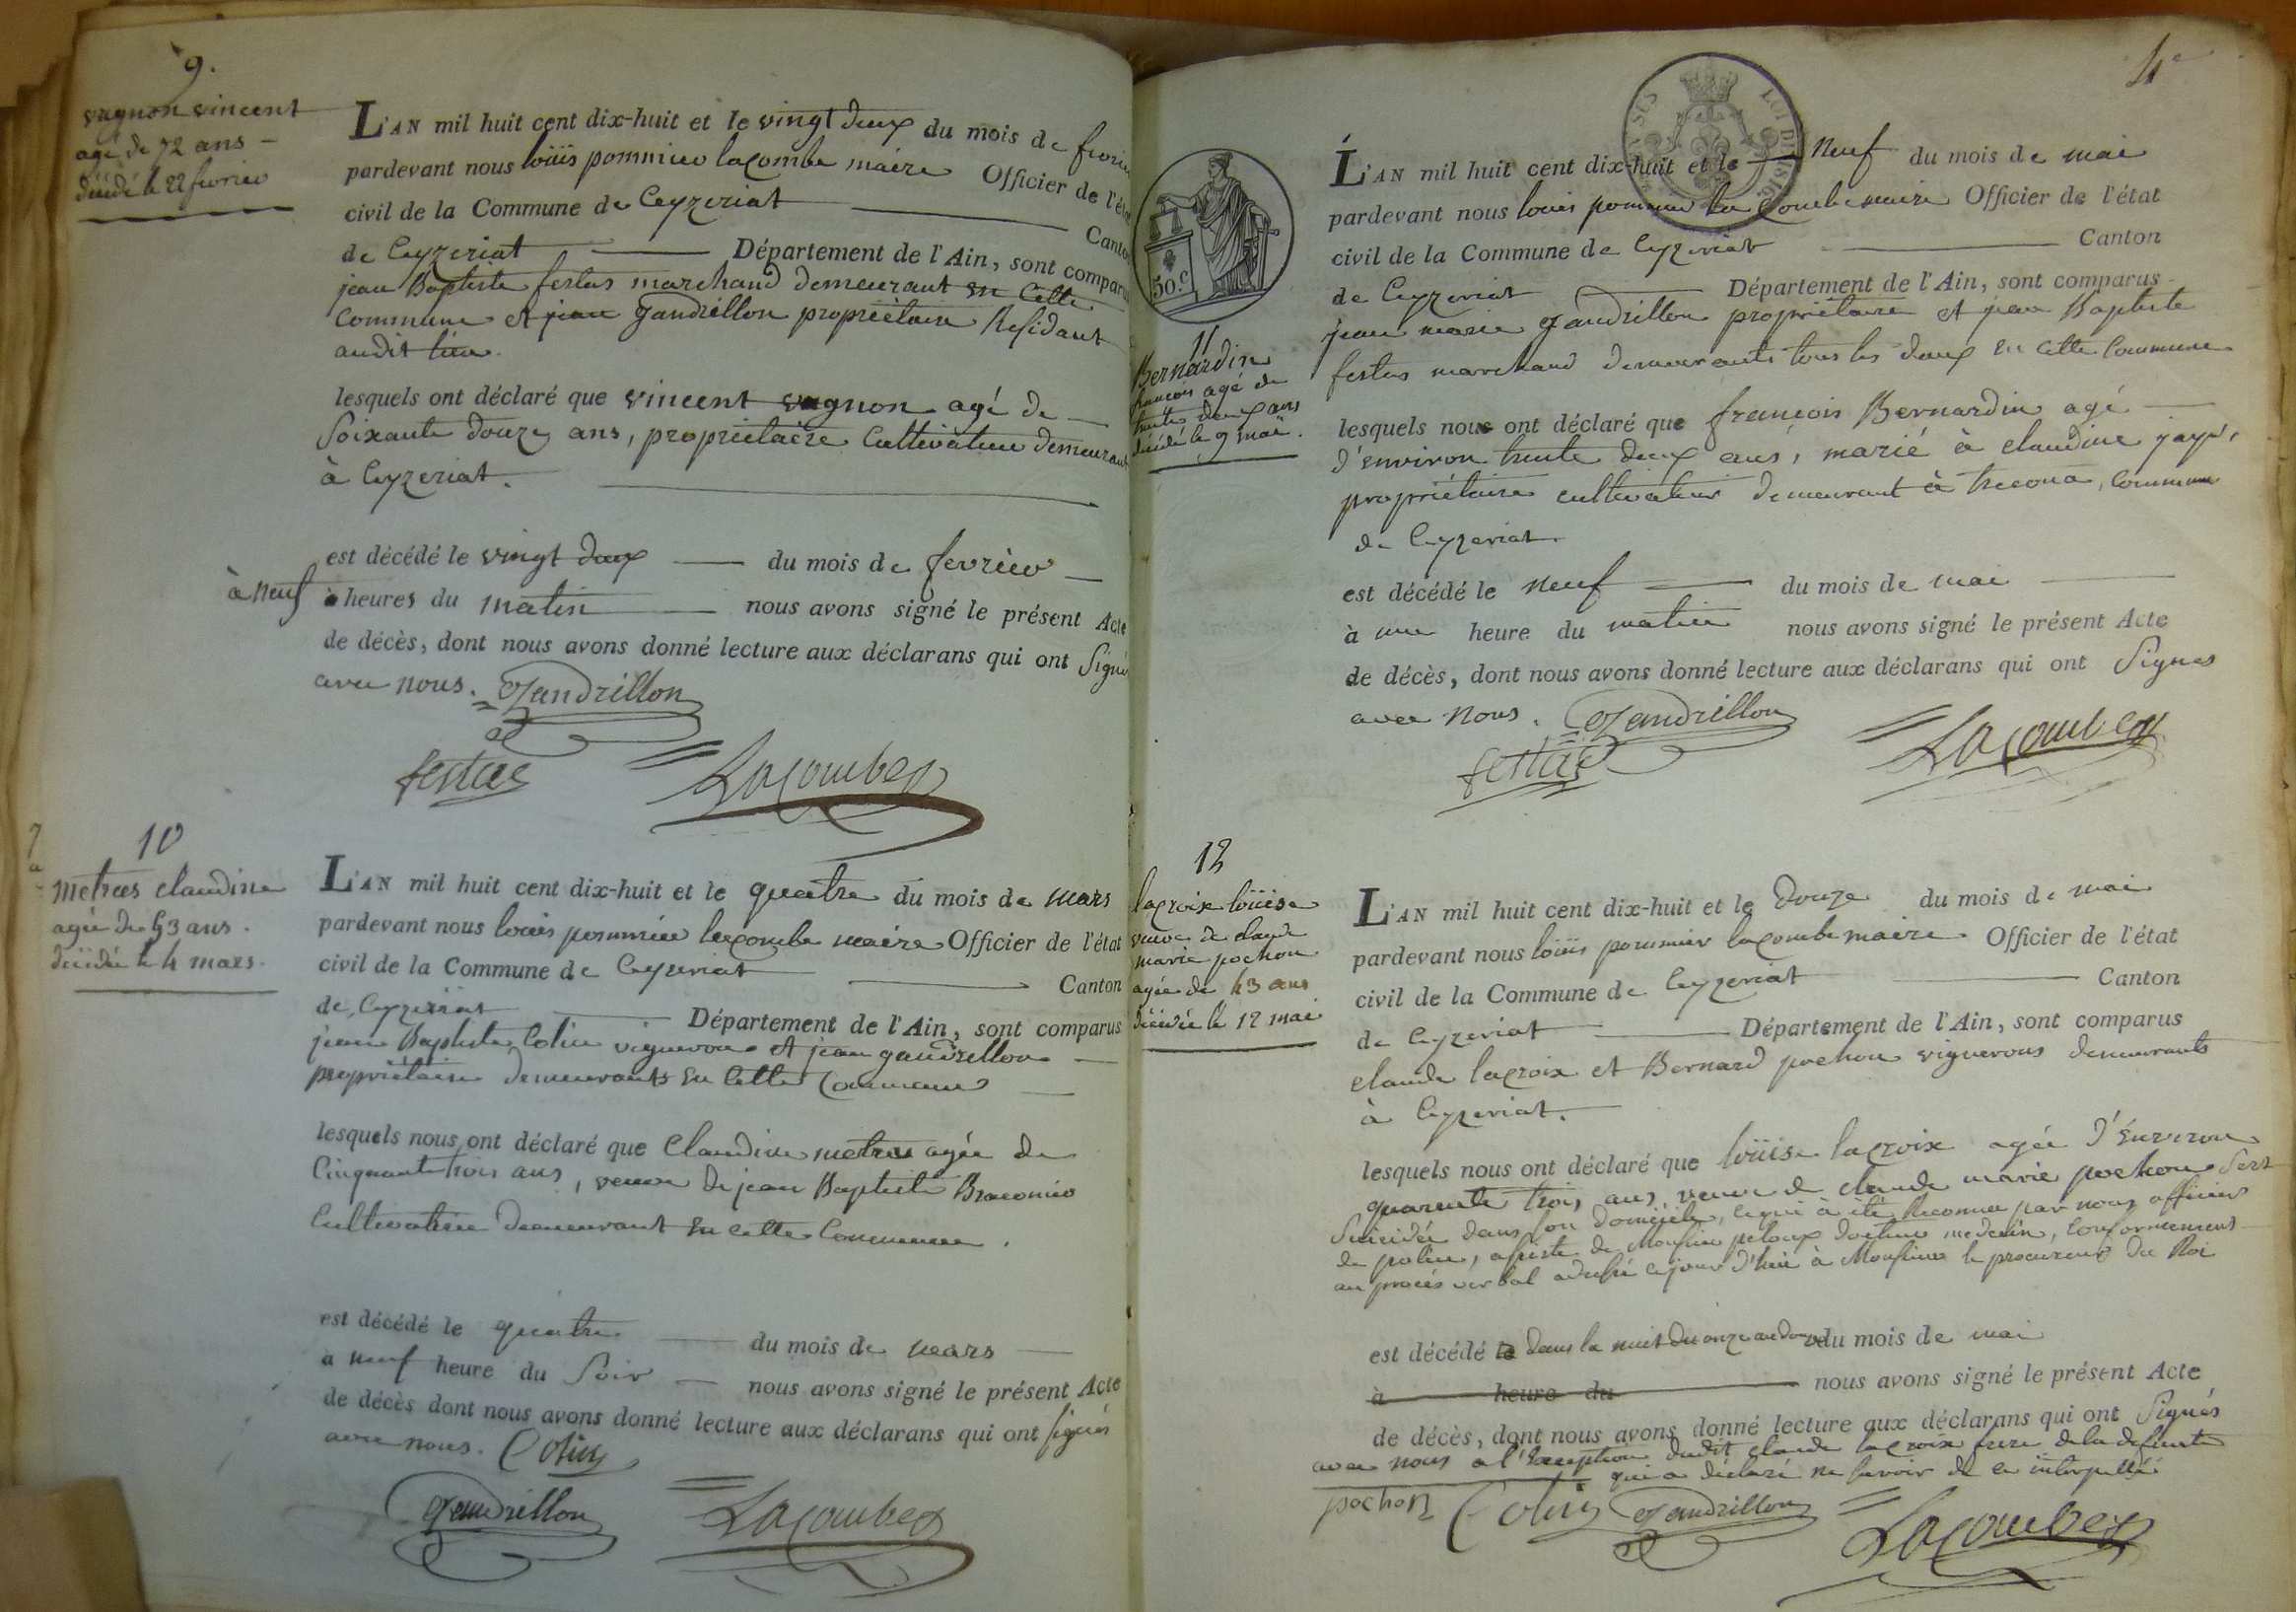 9.
vugnon vincent
agé de 72 ans
décédé le 22 fevrier
L'AN mil huit cent dix-huit et le vingt deux du mois de fevrier
pardevant nous loüis pommier lacombe maire Officier de l'état
civil de la Commune de Ceyzeriat Canton
de Ceyzeriat Département de l'Ain, sont comparus
jean Baptiste festas marchand demeurant en cette
Commune et jean gandrillon propriétaire Residant
audit lieu.
lesquels ont déclaré que vincent vugnon agé de
soixante douze ans, propriétaire Cultivateur demeurant
à Ceyzeriat.
est décédé le vingt deux du mois de fevrier
à neuf heures du matin nous avons signé le présent Acte
de décès, dont nous avons donné lecture aux déclarans qui ont signé
avec nous. Gandrillon
festas Lacombe
10
metras claudine
agée de 53 ans.
décédée le 4 mars.
L'AN mil huit cent dix-huit et le quatre du mois de mars
pardevant nous louis pommier lacombe maire Officier de l'état
civil de la Commune de Ceyzeriat Canton
de Ceyzeriat Département de l'Ain, sont comparus
jean Baptiste Colin vigneron et jean gandrillon
propriétaire demeurants en cette Commune
lesquels nous ont déclaré que Claudine metras agée de
Cinquante trois ans, veuve de jean Baptiste
Cultivatrice demeurant en cette Commune.
est décédé le quatre du mois de mars
à neuf heure du soir nous avons signé le présent Acte
de décès dont nous avons donné lecture aux déclarans qui ont signés
avec nous. Colin
Gandrillon Lacombe
4e
50.c
11
Bernardin
francois agé de
trente deux ans
décédé le 9 mai.
L'AN mil huit cent dix-huit et le neuf du mois de mai
pardevant nous louis pommier la Combe maire Officier de l'état
civil de la Commune de Ceyzeriat Canton
de Ceyzeriat Département de l'Ain, sont comparus
jean marie gandrillon propriétaire et jean Baptiste
festas marchand demeurants tous les deux en cette Commune
lesquels nous ont déclaré que francois Bernardin agé
d'environ trente deux ans, marié à claudine
propriétaire cultivateur demeurant à trecona, Commune
de Ceyzeriat.
est décédé le neuf du mois de mai
à une heure du matin nous avons signé le présent Acte
de décès, dont nous avons donné lecture aux déclarans qui ont signés
avec nous. Gandrillon
festas Lacombe
12
lacroix loüise
veuve de claude
marie pochon
agée de 43 ans
décédée le 12 mai
L'AN mil huit cent dix-huit et le douze du mois de mai
pardevant nous loüis pommier lacombe maire Officier de l'état
civil de la Commune de Ceyzeriat Canton
de Ceyzeriat Département de l'Ain, sont comparus
claude lacroix et Bernard pochon vignerons demeurants
à Ceyzeriat.
lesquels nous ont déclaré que loüise lacroix agée d'environ
quarante trois ans, veuve de claude marie pochon s'est
suicidée dans son domicile, ce qui à été Reconnu par nous officier
de police, assisté de Monsieur peloux docteur medecin, Conformement
au procès verbal adressé ce jour d'hui à Monsieur le procureur du Roi
est décédé dans la nuit du onze au douze du mois de mai
à heure du nous avons signé le présent Acte
de décès, dont nous avons donné lecture aux déclarans qui ont signés
avec nous a l'exception dudit claude lacroix frere de la defunte
qui a déclaré ne savoir de ce interpellé
pochon Colin Gandrillon Lacombe